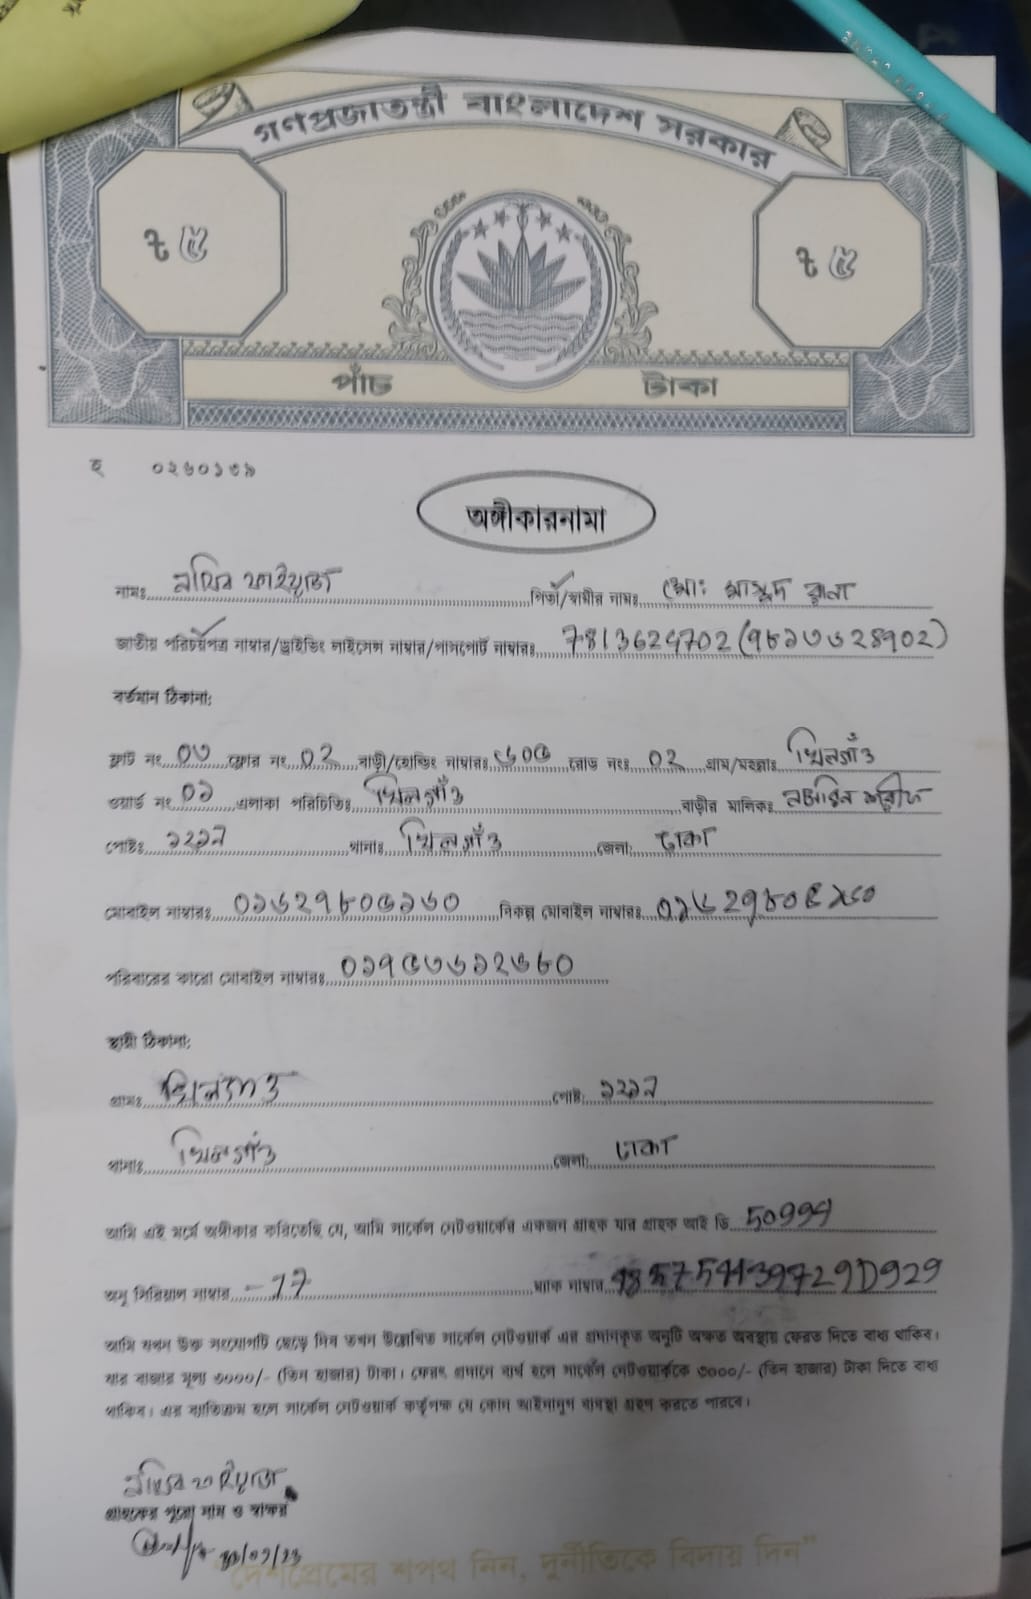 গণপ্রজাতন্ত্রী বাংলাদেশ সরকার
৳ ৫
৳ ৫
পাঁচ টাকা
০২৬০১৩৯
অঙ্গীকারনামা
নামঃ পিতা/স্বামীর নামঃ মোঃ মাসুদ রানা
জাতীয় পরিচয়পত্র নাম্বার/ড্রাইভিং লাইসেন্স নাম্বার/পাসপোর্ট নাম্বারঃ 7813624702 (৭৮১৩৬২৪৭০২)
বর্তমান ঠিকানা:
ফ্লাট নং ০৩ ফ্লোর নং ০২ বাড়ী/হোল্ডিং নাম্বারঃ ৬০৫ রোড নংঃ ০২ গ্রাম/মহল্লাঃ খিলগাঁও
ওয়ার্ড নং ০১ এলাকা পরিচিতিঃ খিলগাঁও বাড়ীর মালিকঃ শরীফ
পোষ্টঃ ১২১৯ থানাঃ খিলগাঁও জেলা: ঢাকা
মোবাইল নাম্বারঃ ০১৬২৭৮০৫১৬০ বিকল্প মোবাইল নাম্বারঃ ০১৬২৭৮০৫১৬০
পরিবারের কারো মোবাইল নাম্বারঃ ০১৭৫৩৬১২৩৮০
স্থায়ী ঠিকানা:
গ্রামঃ খিলগাঁও পোষ্ট: ১২১৯
থানাঃ খিলগাঁও জেলা: ঢাকা
আমি এই মর্মে অঙ্গীকার করিতেছি যে, আমি সার্কেল নেটওয়ার্কের একজন গ্রাহক যার গ্রাহক আই ডি 50994
অনু সিরিয়াল নাম্বার -17 ম্যাক নাম্বার
আমি যখন উক্ত সংযোগটি ছেড়ে দিব তখন উল্লেখিত সার্কেল নেটওয়ার্ক এর প্রদানকৃত অনুটি অক্ষত অবস্থায় ফেরত দিতে বাধ্য থাকিব।
যার বাজার মূল্য ৩০০০/- (তিন হাজার) টাকা। ফেরৎ প্রদানে ব্যর্থ হলে সার্কেল নেটওয়ার্ককে ৩০০০/- (তিন হাজার) টাকা দিতে বাধ্য
থাকিব। এর ব্যতিক্রম হলে সার্কেল নেটওয়ার্ক কর্তৃপক্ষ যে কোন আইনানুগ ব্যবস্থা গ্রহণ করতে পারবে।
গ্রাহকের পুরো নাম ও স্বাক্ষর
"দেশপ্রেমের শপথ নিন, দুর্নীতিকে বিদায় দিন"